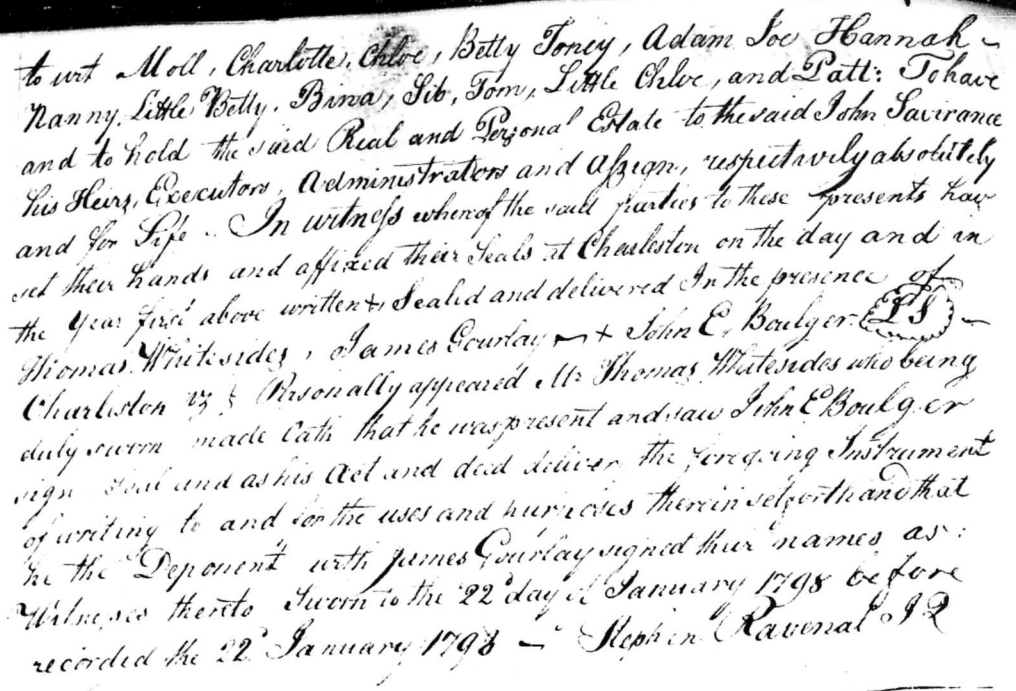 to wit Moll, Charlotte, Chloe, Betty Toney, Adam Joe Hannah -
Nanny, Little Betty, Bina, Sib, Tom, Little Chloe, and Patt: To have
and to hold the said Real and Personal Estate to the said John Savirance
his Heirs, Executors, Administrators and Assign, respectively absolutely
and for Life - In witness whereof the said parties to these presents hav
set their hands and affixed their Seals at Charleston on the day and in
the Year first above written & Sealed and delivered In the presence of
Thomas Whitesides, James Gourlay - + John E. Boulger LS -
Charleston Personally appeared Mr Thomas Whitesides who being
duly sworn made Oath that he was present and saw John E Boulger
sign seal and as his Act and deed deliver the foregoing Instrument
of writing to and for the uses and purposes therein set forth and that
he the Deponent with James Gourlay signed their names as:
Witnesses thereto Sworn to the 22d day of January 1798 before
recorded the 22d January 1798 - Stephen Ravenal J Q